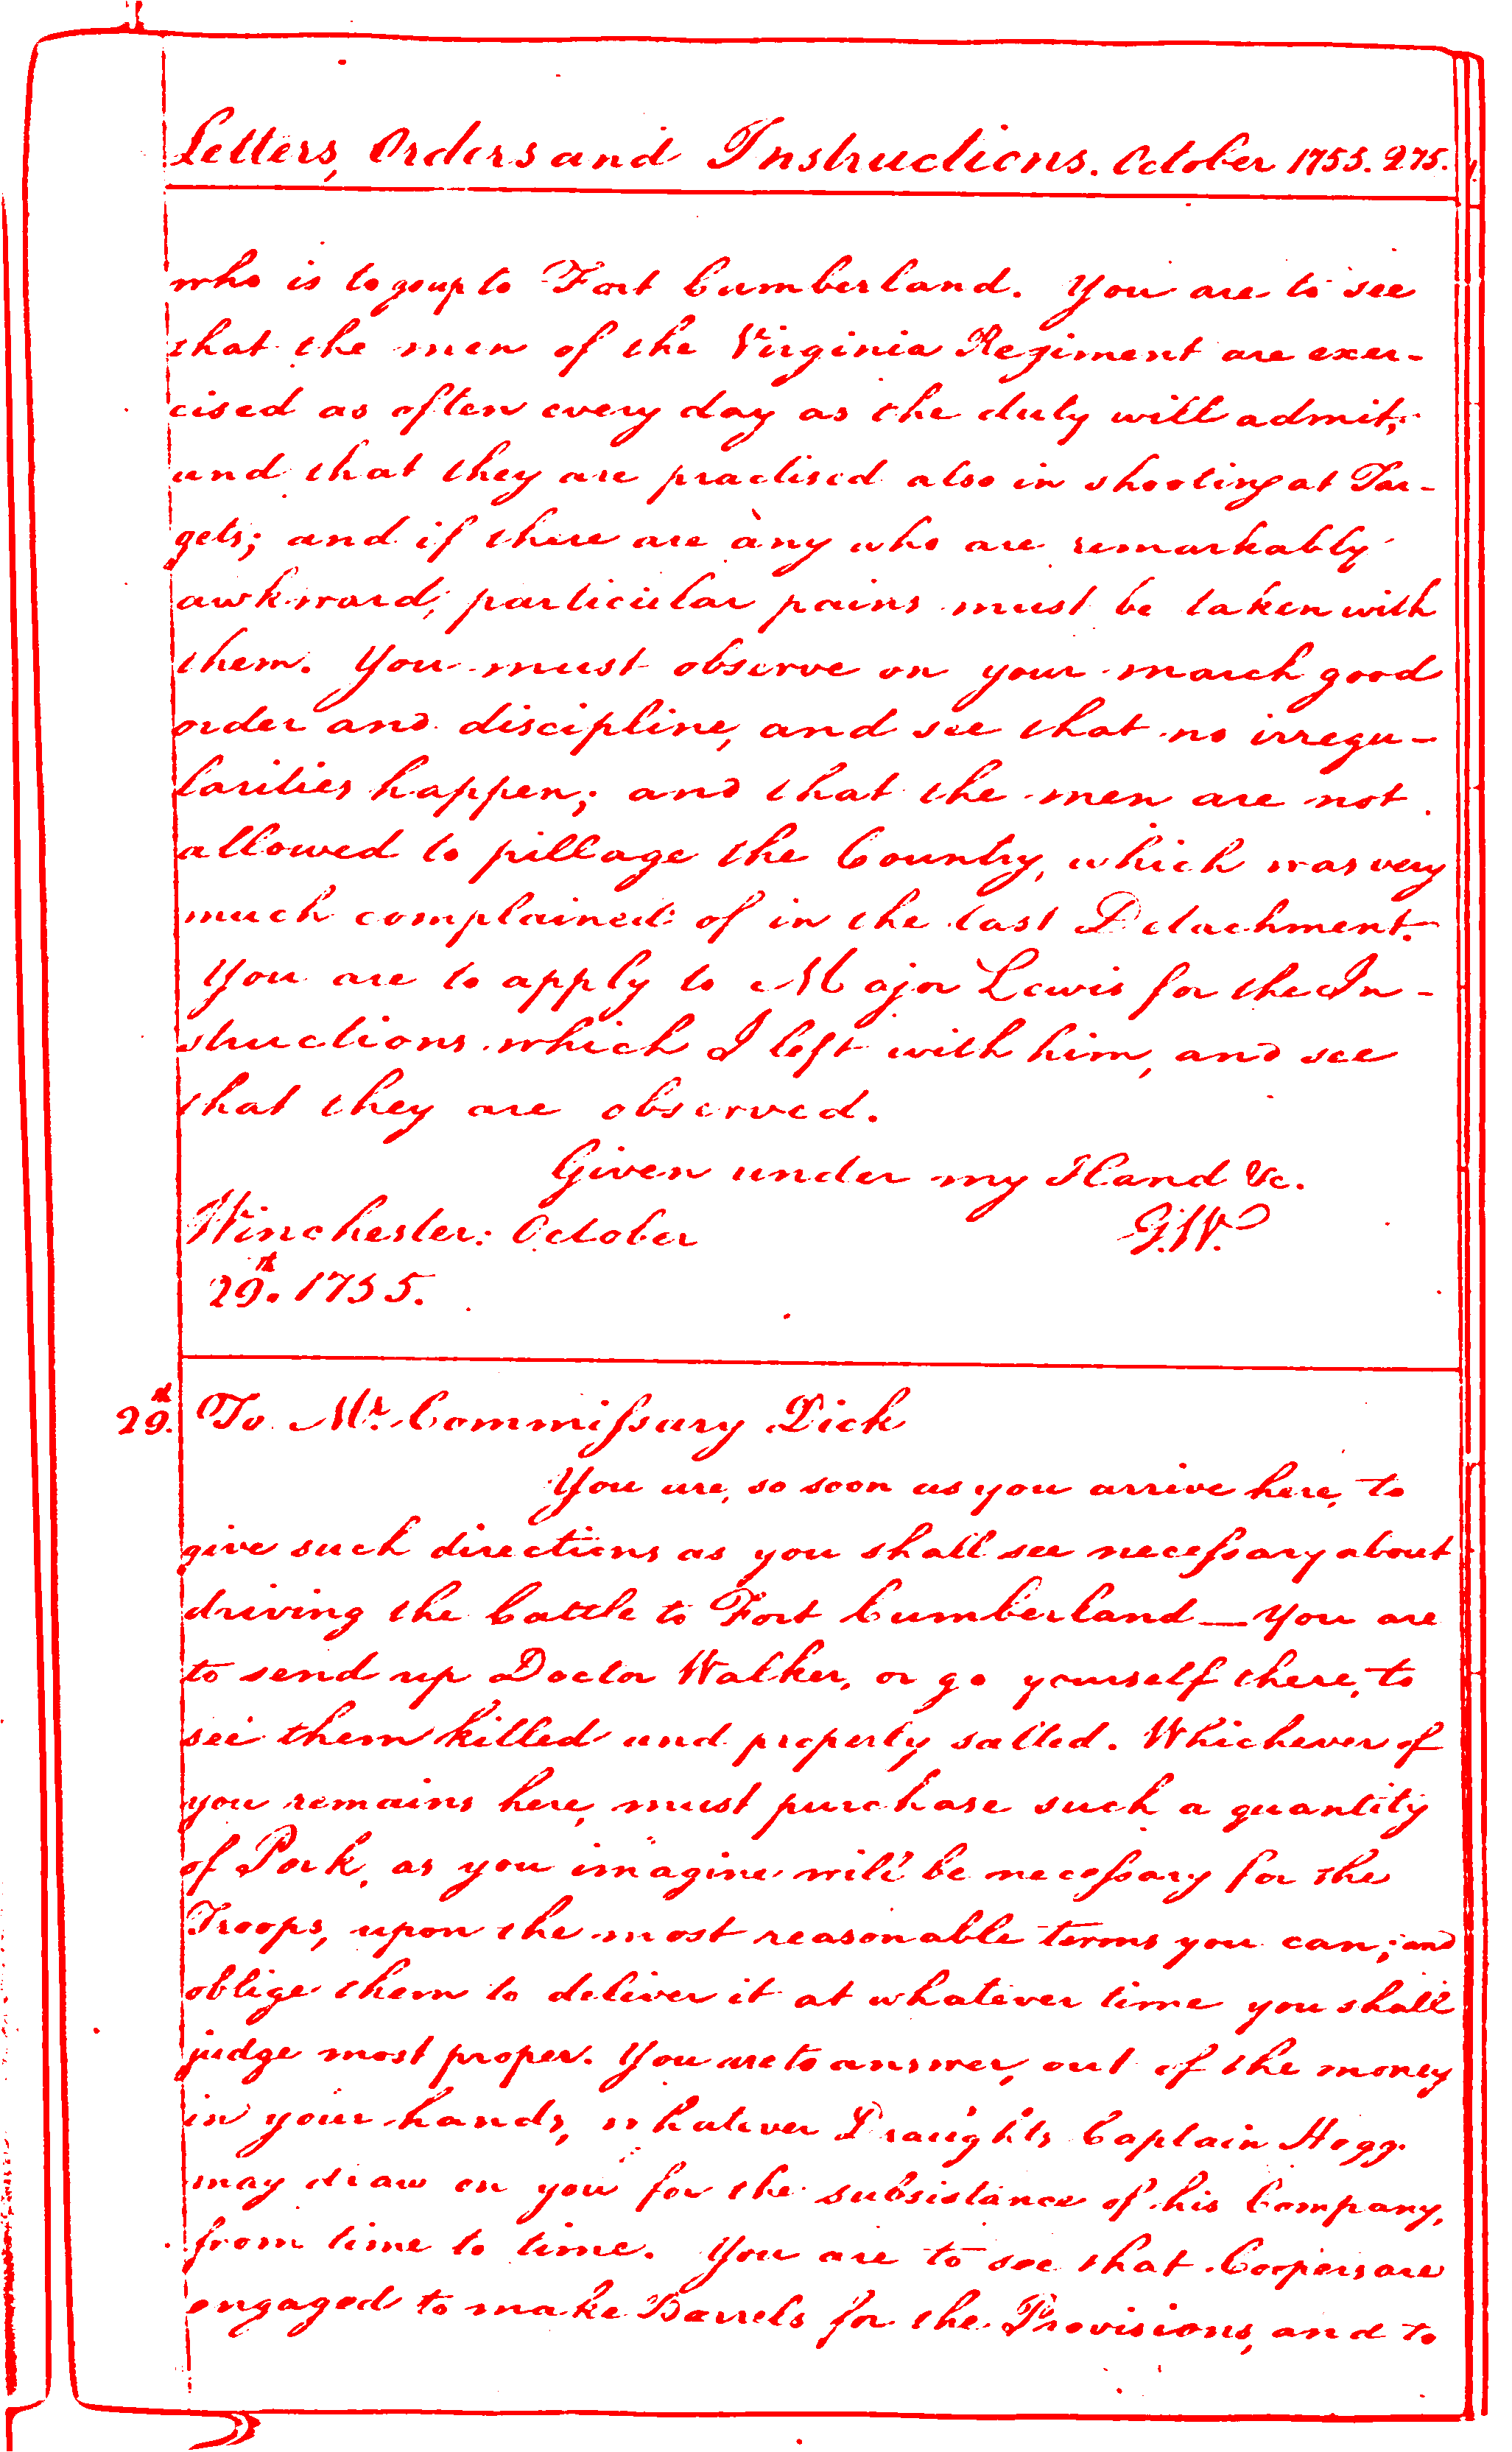 Letters, Orders and Instructions. October 1755. 275.
who is to go up to Fort Cumberland. You are to see
that the men of the Virginia Regiment are exer-
cised as often every day as the duty will admit;
and that they are practised also in shooting at Tar-
gets; and if there are any who are remarkably
awkward; particular pains must be taken with
them. You must observe on your march good
order and discipline, and see that no irregu-
larities happen; and that the men are not
allowed to pillage the Country, which was very
much complained of in the last Detachment.
You are to apply to Major Lewis for the In-
structions which I left with him, and see
that they are observed.
Given under my Hand &c.
Winchester: October G.W.
29th. 1755.
29th. To Mr. Commissary Dick
You are, so soon as you arrive here, to
give such directions as you shall see necessary about
driving the Cattle to Fort Cumberland — You are
to send up Doctor Walker, or go yourself there, to
see them killed and properly salted. Whichever of
you remains here, must purchase such a quantity
of Pork, as you imagine will be necessary for the
Troops, upon the most reasonable terms you can; and
oblige them to deliver it at whatever time you shall
judge most proper. You are to answer, out of the money
in your hands, whatever Draughts Captain Hogg
may draw on you for the subsistance of his Company,
from time to time. You are to see that Coopers are
engaged to make Barrels for the Provisions, and to